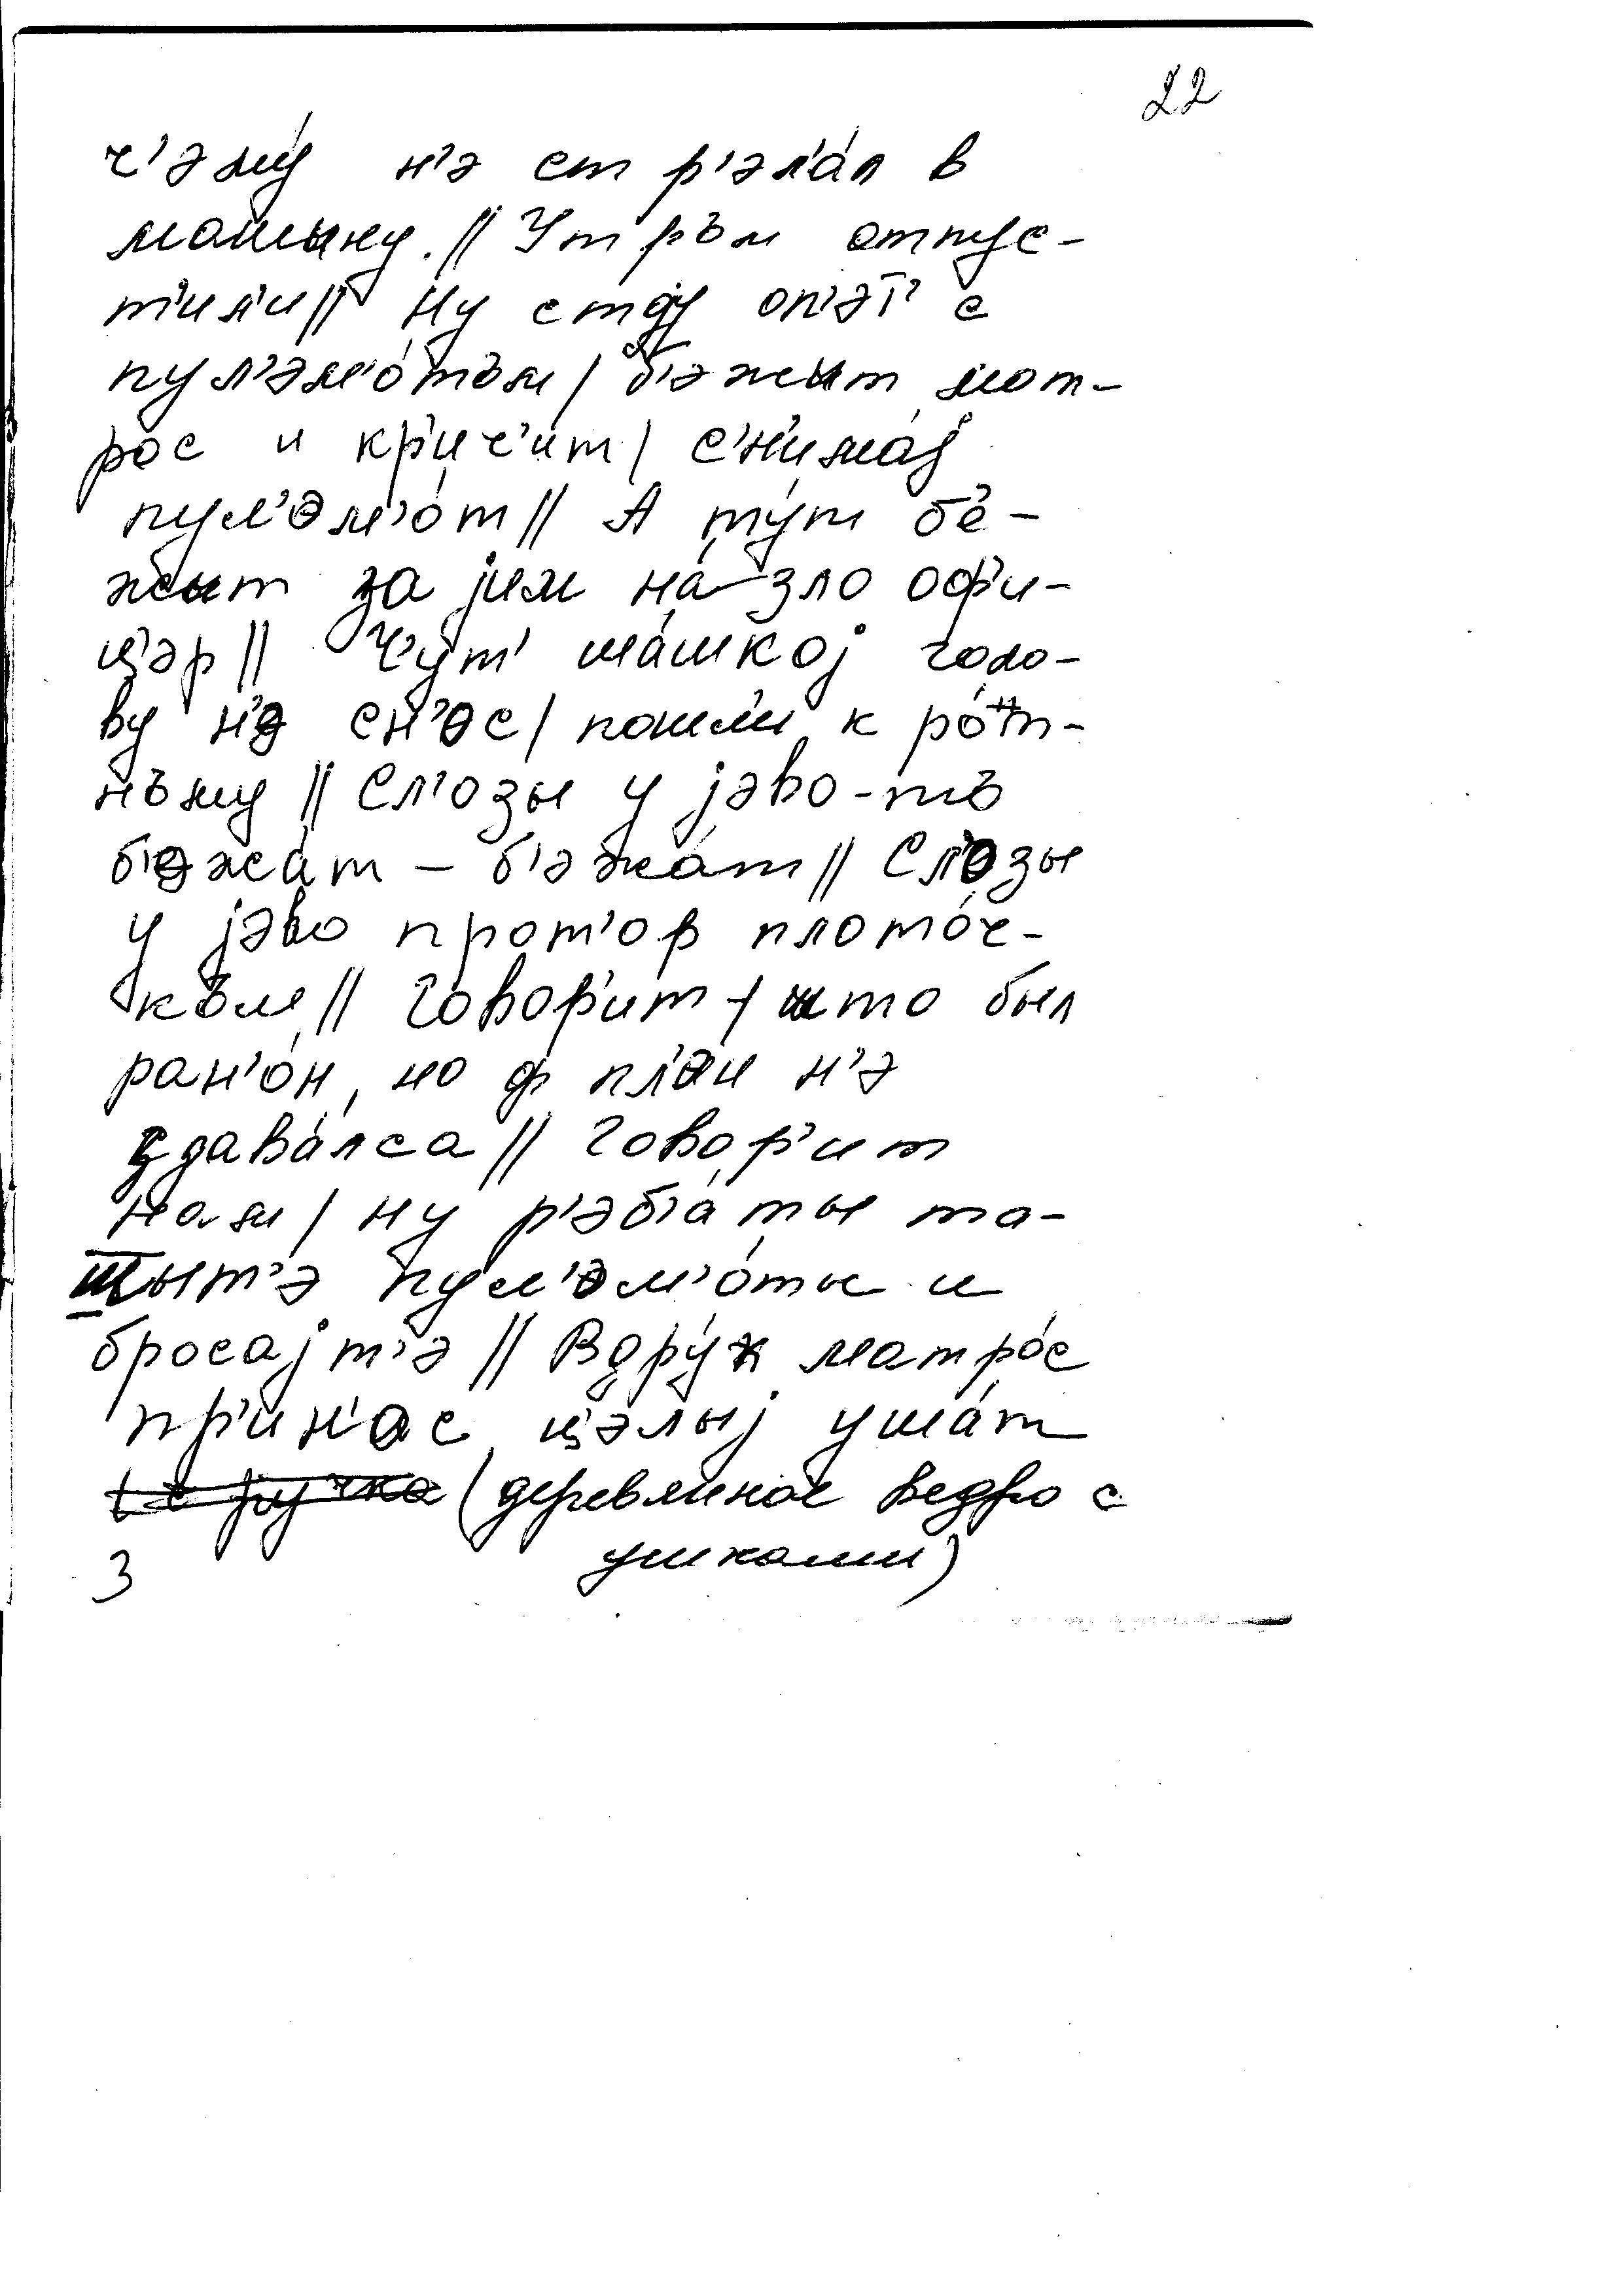 22
ч'эму́ н'э стр'эл'а́л в
машыну. // Утръм отпус-
т'ил'и // Ну стоју оп'эт' с
пул'эм'о́тъм / б'эжыт мат-
рос и кр'ич'и́т / с'н'има́ј
пул'эм'о́т // А ту́т б'э-
жыт за јим на́ зло оф'и-
цэр // Ч'ут' ша́шкој голо-
ву н'э с'н'ос / пошл'и к ро́т-
нъму // Сл'озы у јэво-тъ
б'эжа́т – б'эжа́т // Сл'озы
у јэво прот'ор плато́ч-
към // Говор'ит / што был
ран'о́н, но ф пл'эн н'э
здава́лса // Говор'ит
нам / ну р'эб'а́ты та-
шшыт'э пул'эм'о́ты и
бросајт'э // Вдру́к матро́с
пр'ин'ос цэлыј уша́т
(деревянное ведро с
ушками)
3